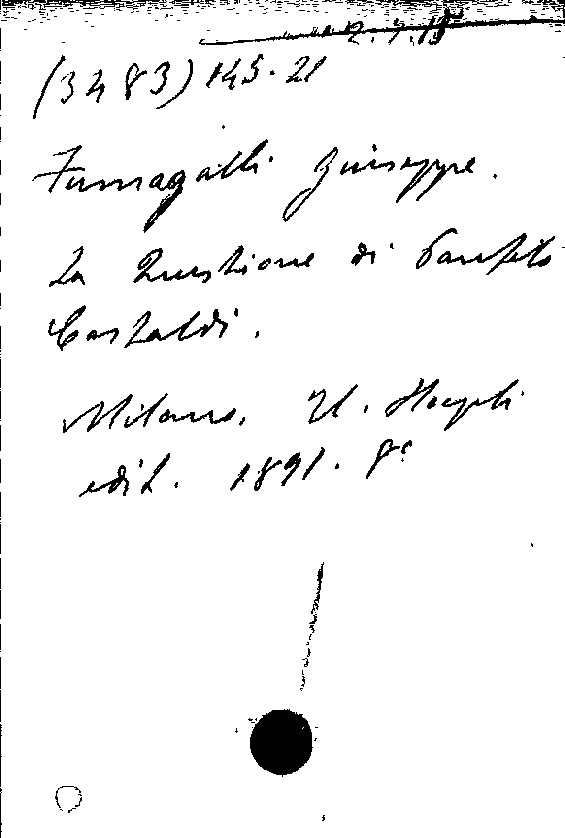 (3483) 145.21
Fumagalli Giuseppe.
La Questione di Panfilo
Castaldi.
Milano. U. Hoepli
edit. 1891. 8°